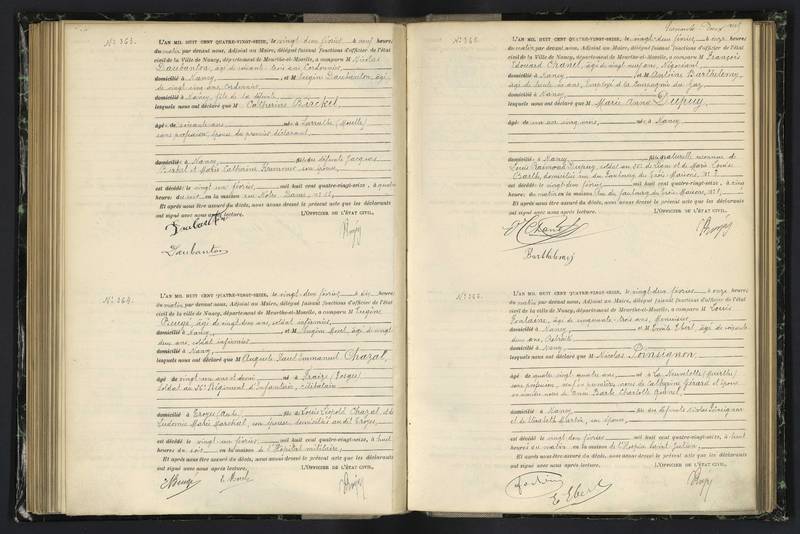 N° 363.
L'AN MIL HUIT CENT QUATRE-VINGT-SEIZE, le vingt deux février à neuf heures
du matin par devant nous, Adjoint au Maire, délégué faisant fonctions d'officier de l'état
civil de la Ville de Nancy, département de Meurthe-et-Moselle, a comparu M Nicolas
Daubanton, âgé de soixante trois ans, Cordonnier
domicilié à Nancy, et M Eugène Daubanton, âgé
de vingt cinq ans, Cordonnier
domicilié à Nancy, fils de la défunte
lesquels nous ont déclaré que M Catherine Birckel,
âgée de soixante ans née à (Moselle)
sans profession, épouse du premier déclarant
domicilié à Nancy fille des défunts Jacques
Birckel et Marie Catherine son épouse,
est décédée le vingt un février mil huit cent quatre-vingt-seize, à quatre
heures du soir en la maison rue Notre Dame,
Et après nous être assuré du décès, nous avons dressé le présent acte que les déclarants
ont signé avec nous après lecture. L'OFFICIER DE L'ÉTAT CIVIL,
Daubanton
Daubanton
N° 364.
L'AN MIL HUIT CENT QUATRE-VINGT-SEIZE, le vingt deux février à dix heures
du matin par devant nous, Adjoint au Maire, délégué faisant fonctions d'officier de l'état
civil de la ville de Nancy, département de Meurthe-et-Moselle, a comparu M Eugène
âgé de vingt deux ans, soldat infirmier
domicilié à Nancy, et M Eugène âgé de vingt
deux ans, soldat infirmier
domicilié à Nancy
lesquels nous ont déclaré que M Auguste Paul Emmanuel Chazal,
âgé de vingt un ans et demi né à Fraize (Vosges)
soldat au Régiment d'Infanterie, célibataire
domicilié à Troyes (Aube) fils de Louis Léopold Chazal, et de
Marie Marchal, son épouse, domiciliés audit Troyes,
est décédé le vingt un février mil huit cent quatre-vingt-seize, à huit
heures du soir en la maison de l'Hôpital militaire,
Et après nous être assuré du décès, nous avons dressé le présent acte que les déclarants
ont signé avec nous après lecture. L'OFFICIER DE L'ÉTAT CIVIL,
L'AN MIL HUIT CENT QUATRE-VINGT-SEIZE, le vingt deux février à onze heures
du matin par devant nous, Adjoint au Maire, délégué faisant fonctions d'officier de l'état
civil de la Ville de Nancy, département de Meurthe-et-Moselle, a comparu M François
Edouard âgé de vingt neuf ans, Négociant
domicilié à Nancy et M Antoine Barthelemy,
âgé de trente six ans, Employé à la Compagnie du Gaz
domicilié à Nancy
lesquels nous ont déclaré que M Marie Anne Dupuy,
âgée de un an cinq mois, née à Nancy
domicilié à Nancy fille naturelle reconnue de
Louis Raimond Dupuy, soldat au de ligne et de Marie Louise
Barth, domiciliée rue du Faubourg des Trois Maisons, N° 7
est décédée le vingt deux février mil huit cent quatre-vingt-seize, à cinq
heures du matin en la maison rue du faubourg des Trois Maisons, N° 7
Et après nous être assuré du décès, nous avons dressé le présent acte que les déclarants
ont signé avec nous après lecture. L'OFFICIER DE L'ÉTAT CIVIL,
Barthelemy
L'AN MIL HUIT CENT QUATRE-VINGT-SEIZE, le vingt deux février à onze heures
du matin par devant nous, Adjoint au Maire, délégué faisant fonctions d'officier de l'état
civil de la ville de Nancy, département de Meurthe-et-Moselle, a comparu M Louis
Fontaine, âgé de cinquante trois ans, Menuisier
domicilié à Nancy et M Emile Ebert, âgé de soixante
deux ans, Retraité
domicilié à Nancy
lesquels nous ont déclaré que M Nicolas Poinsignon,
âgé de quatre vingt quatre ans né à La Neuvelotte (Meurthe)
sans profession, veuf en premières noces de Catherine Gérard et époux
en secondes noces de Anne Barbe Charlotte
domicilié à Nancy fils des défunts Nicolas Poinsignon
et de Elisabeth Martin, son épouse,
est décédé le vingt deux février mil huit cent quatre-vingt-seize, à huit
heures du matin en la maison de l'Hospice Saint Julien,
Et après nous être assuré du décès, nous avons dressé le présent acte que les déclarants
ont signé avec nous après lecture. L'OFFICIER DE L'ÉTAT CIVIL,
E. Ebert